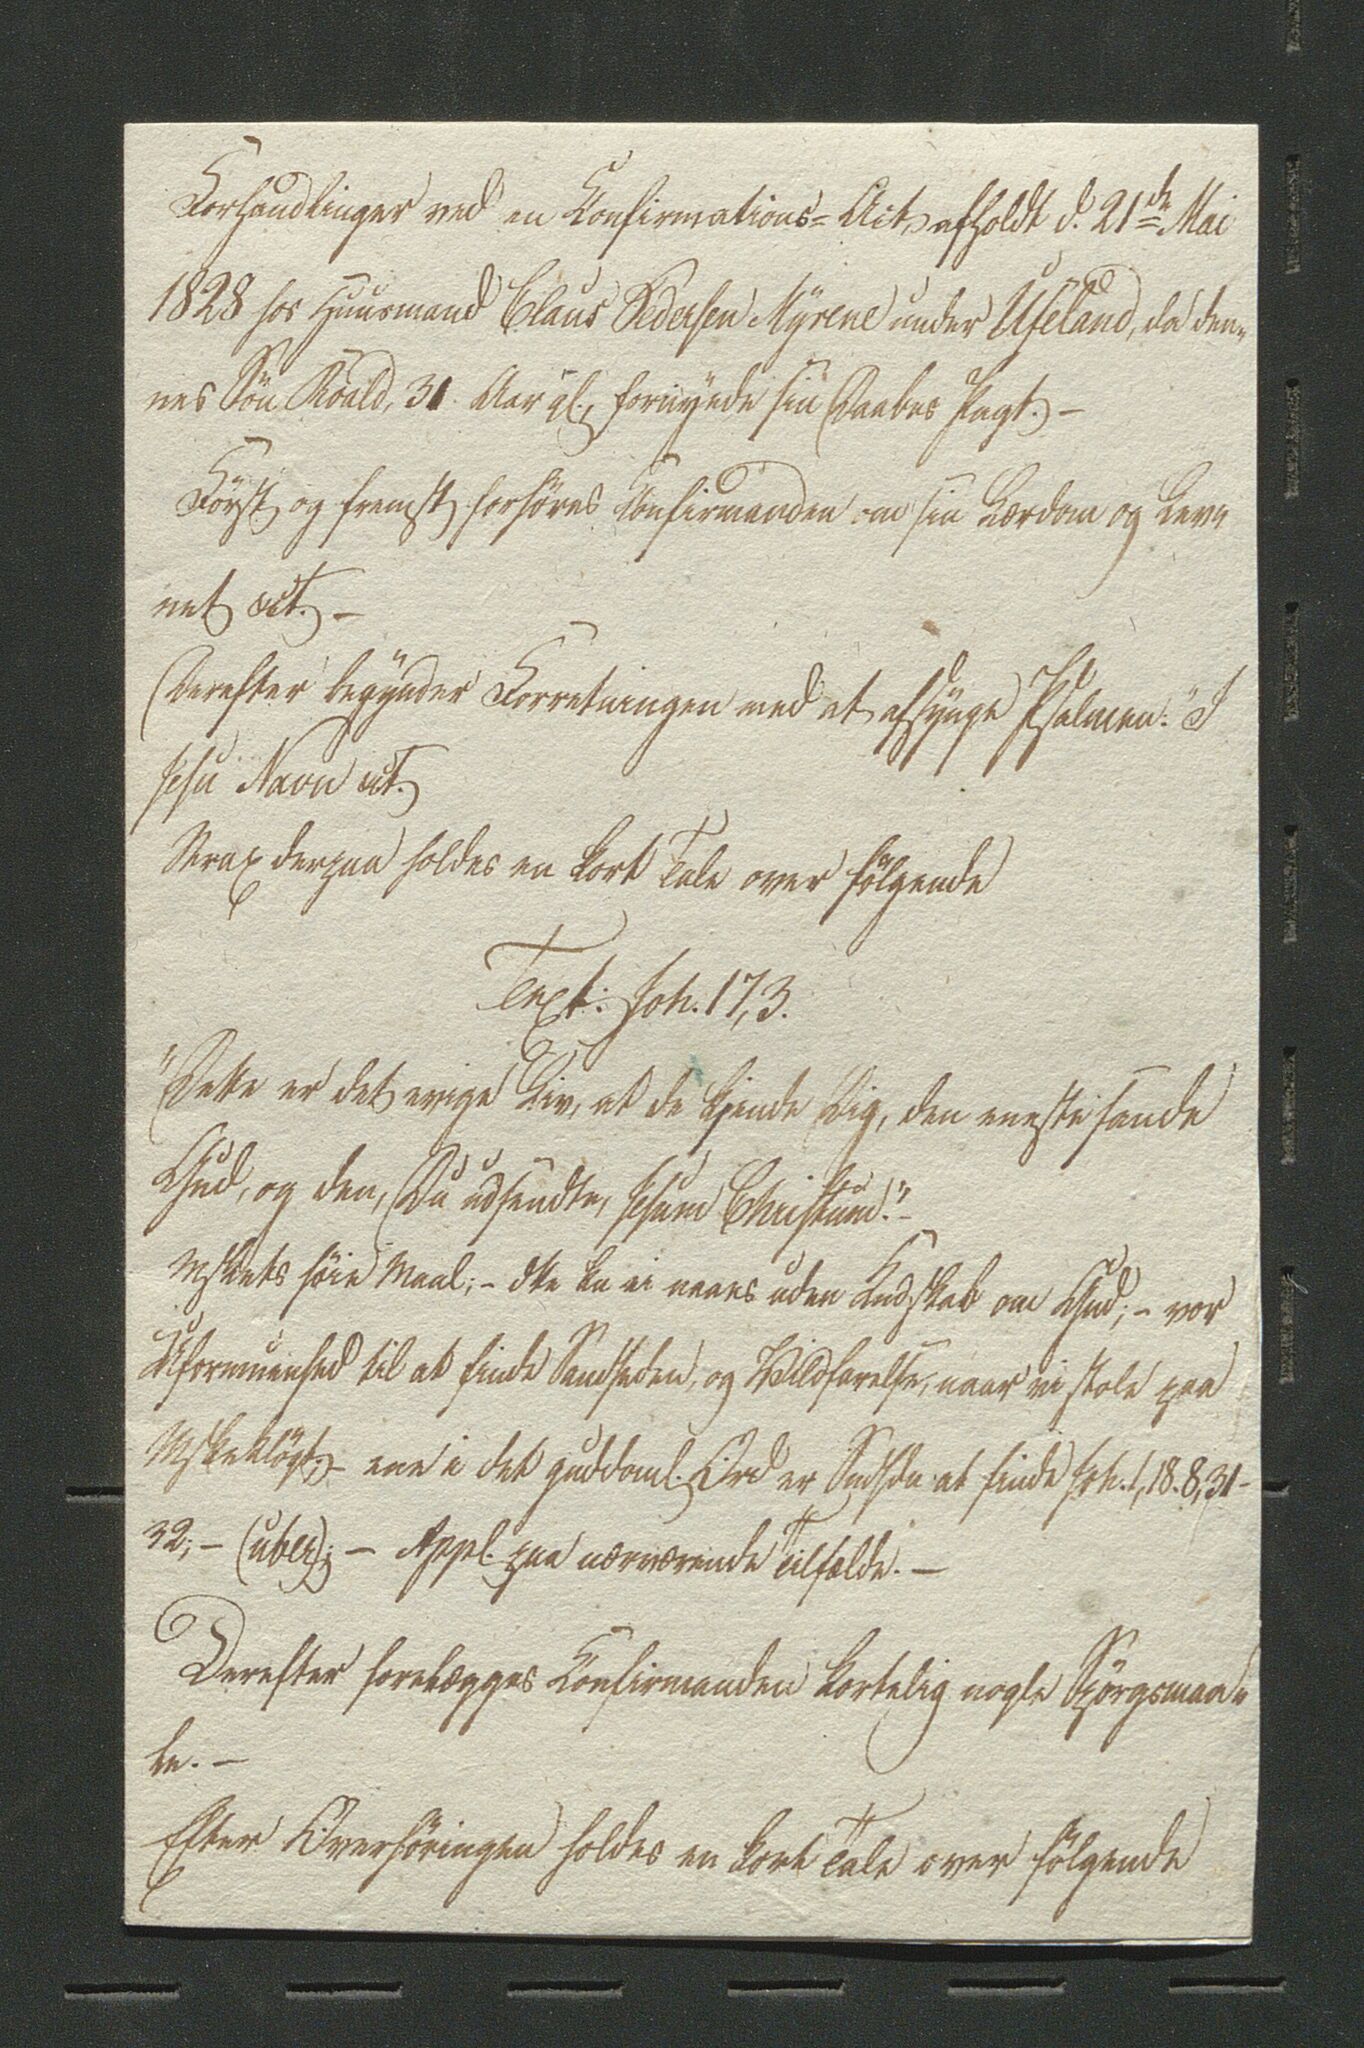 Forhandlinger ved en Confirmations= Act, afholdt d. 21de Mai
1828 hos Huusmand Claus Pedersen Myrene under Ufeland, da den=
nes Søn Roald, 31 Aar gl., fornyede sin Daabes Pagt. –
Først og fremst forhøres Confirmanden om sin Lærdom og Lev=
net &ct. –
Derefter begynder Forretningen med at afsynge Psalmen: "I
Jesu Navn &ct.
Strax derpaa holdes en kort Tale over følgende
Text: Joh. 17,3.
"Dette er det evige Liv, at de kjende Dig, den eneste sande
Gud, og den, Du udsendte, Jesum Christum." –
Mskets høie Maal; – dtte kan ei naaes uden Kundskab om Gud; – vor
Uformuenhed til at finde Sandheden, og Vildfarelse, naar vi stole paa
Mskeklögt; – ene i det guddoml. Ord er Sandhdn at finde Joh. 1,18. 8,31–
32; – (uber); – Appl. paa nærværende Tilfælde. –
Derefter forelægges Confirmanden kortelig nogle Spørgsmaa=
le. –
Efter Overhøringen holdes en kort Tale over følgende